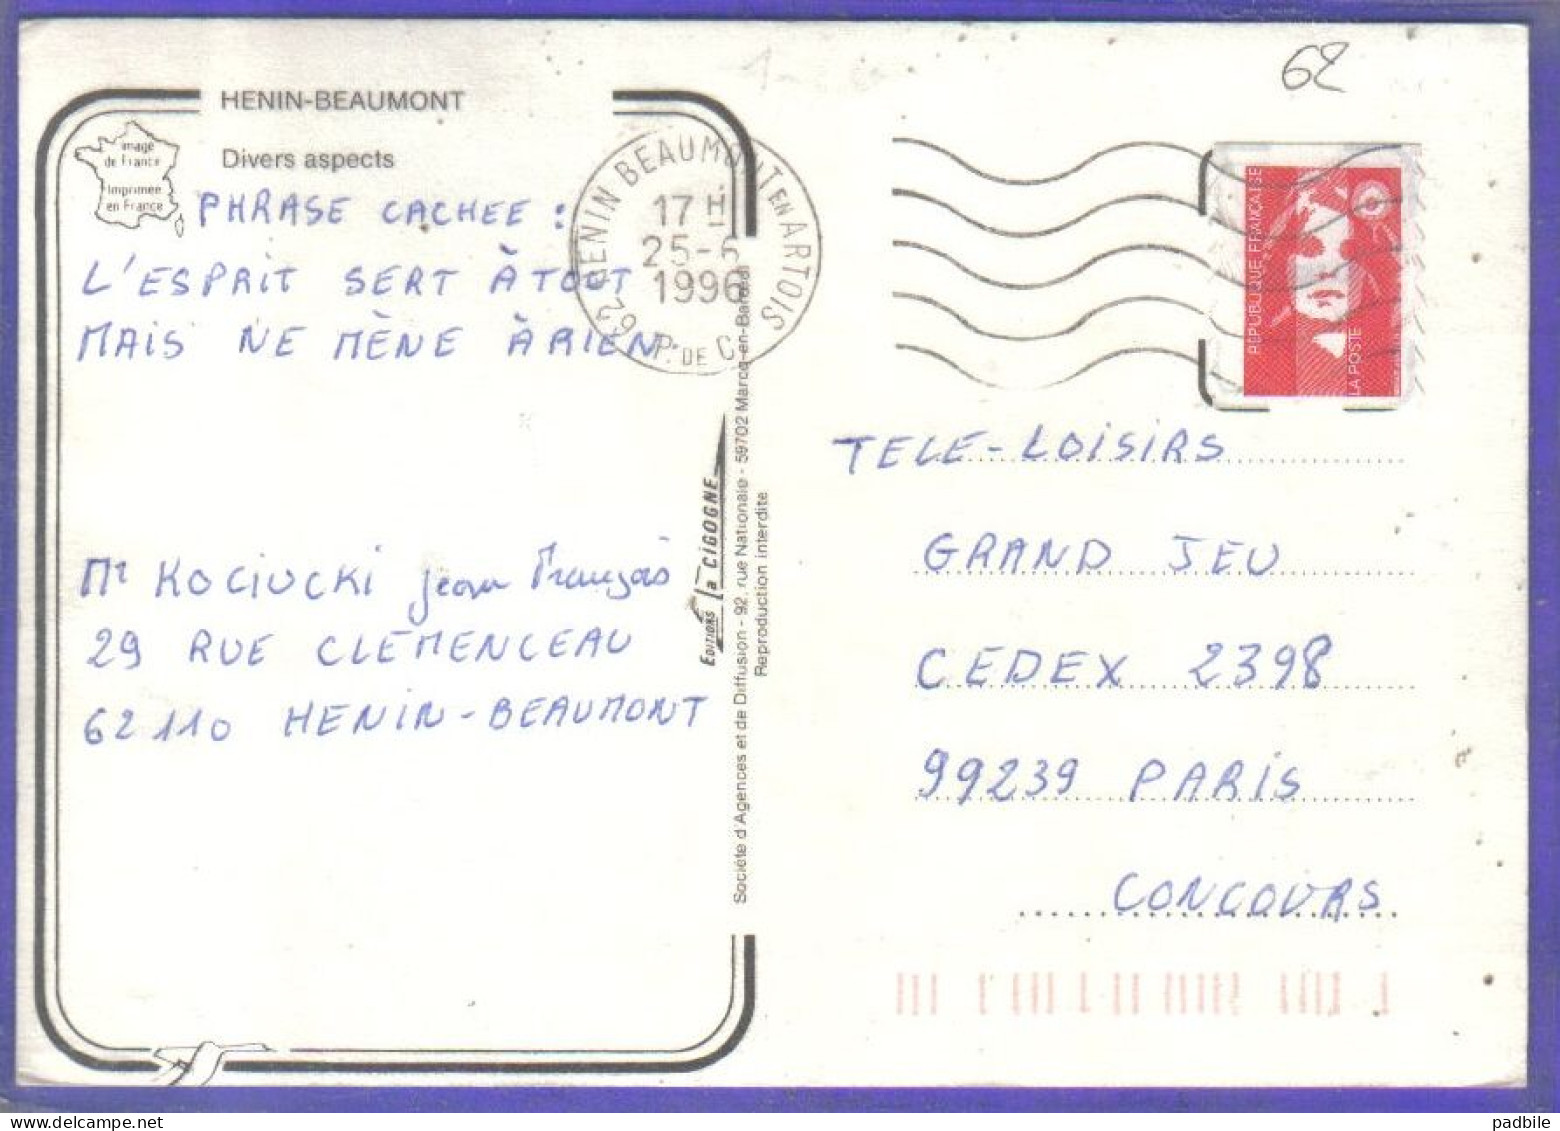 HENIN-BEAUMONT
Divers aspects
image
de France
Imprimée
en France
PHRASE CACHEE :
L'ESPRIT SERT À TOUT
MAIS NE MÈNE À RIEN.
Mr KOCIUCKI Jean François
29 RUE CLEMENCEAU
62110 HENIN-BEAUMONT
62 HENIN BEAUMONT EN ARTOIS
17 H
25-6
1996
P. DE C.
EDITIONS la CIGOGNE
Société d'Agences et de Diffusion - 92, rue Nationale - 59702 Marcq-en-Barœul
Reproduction interdite
62
REPUBLIQUE FRANÇAISE
LA POSTE
TELE-LOISIRS
GRAND JEU
CEDEX 2398
99239 PARIS
CONCOURS
padbile